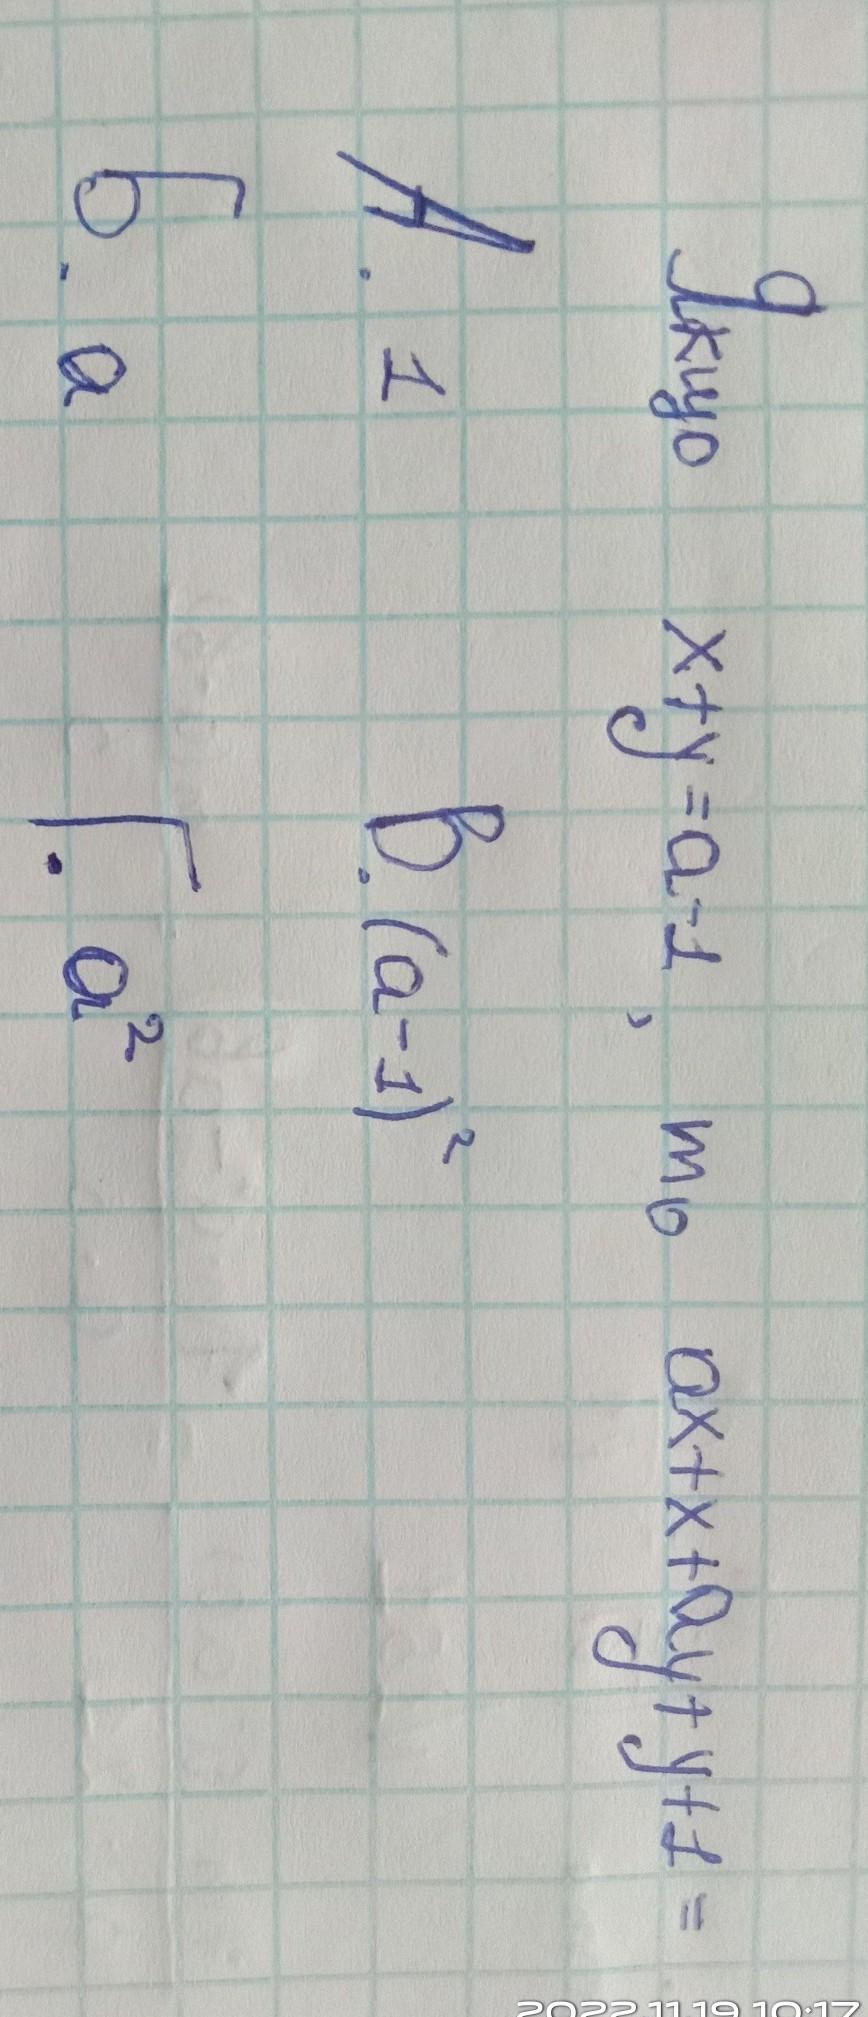 Якщо x+y=a-1, то ax+x+ay+y+1=
А. 1 В. (a-1)²
Б. a Г. a²
2022.11.19 10:17